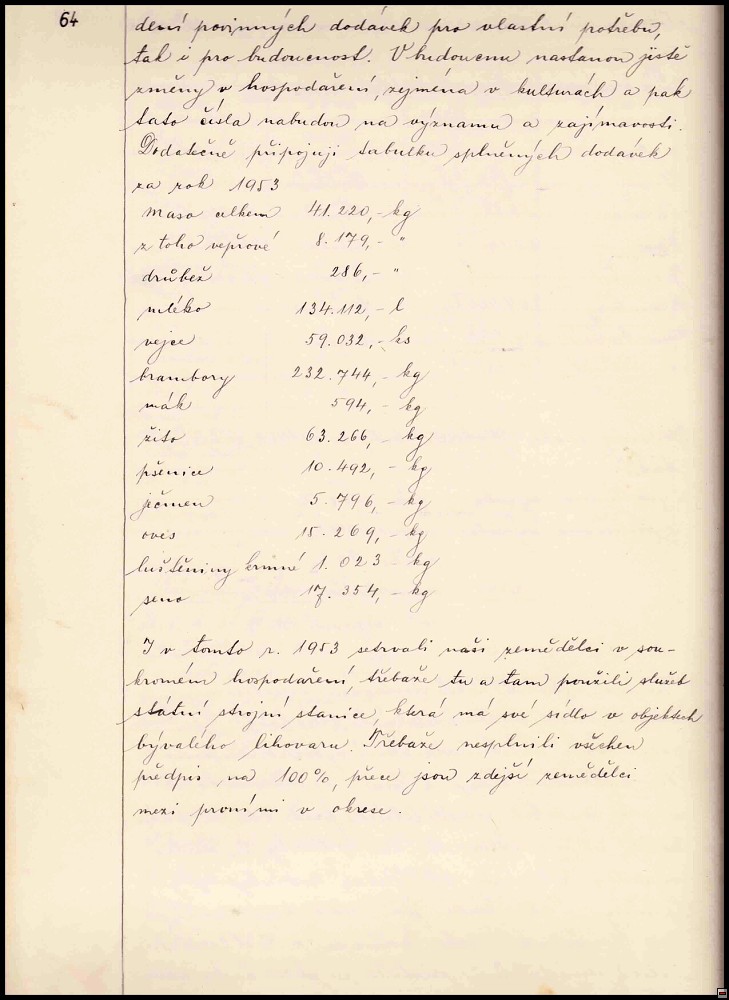 64
dení povinných dodávek pro vlastní potřebu,
tak i pro budoucnost. V budoucnu nastanou jistě
změny v hospodaření, zejména v kulturách a pak
tato čísla nabudou na významu a zajímavosti.
Dodatečně připojuji tabulku splněných dodávek
za rok 1953
maso celkem 41.220,- kg
z toho vepřové 8.179,- "
drůbež 286,- "
mléko 134.112,- l
vejce 59.032,- ks
brambory 232.744,- kg
mák 594,- kg
žito 63.266,- kg
pšenice 10.492,- kg
ječmen 5.796,- kg
oves 15.269,- kg
luštěniny krmné 1.023 - kg
seno 17.354,- kg
I v tomto r. 1953 setrvali naši zemědělci v sou-
kromém hospodaření, třebaže tu a tam použili služeb
státní strojní stanice, která má své sídlo v objektech
bývalého lihovaru. Třebaže nesplnili všechen
předpis na 100%, přece jsou zdejší zemědělci
mezi prvními v okrese.